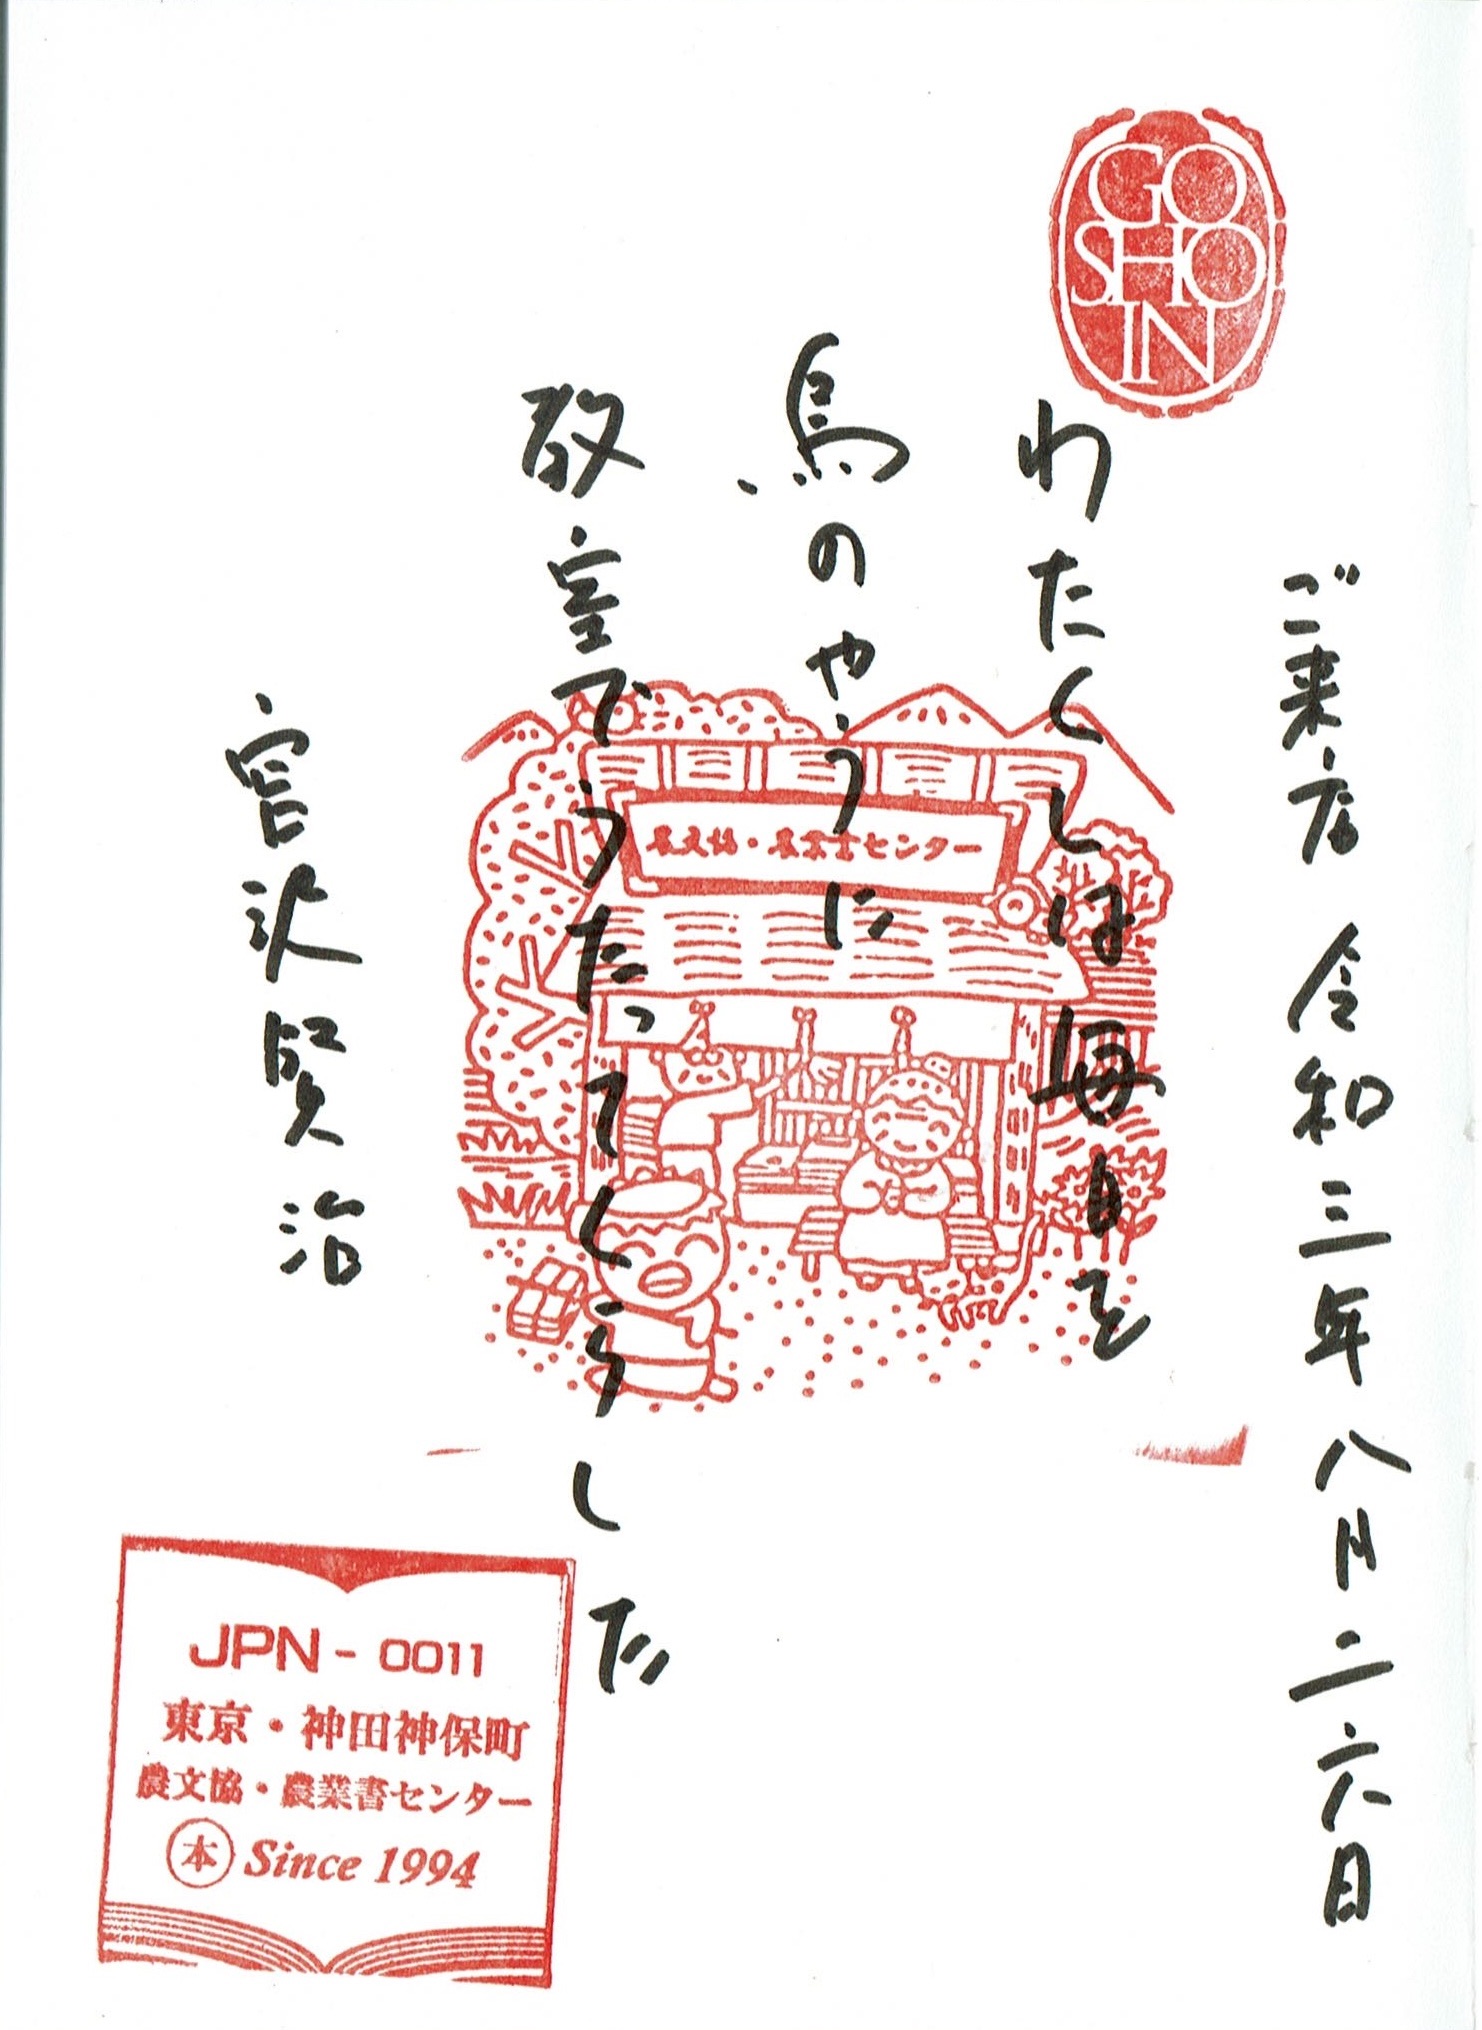 GO
SHO
IN
ご来店 令和三年八月二六日
わたくしは毎日を
鳥のやうに
教室でうたってくらした
宮沢賢治
農文協・農業書センター
JPN-0011
東京・神田神保町
農文協・農業書センター
本 Since 1994